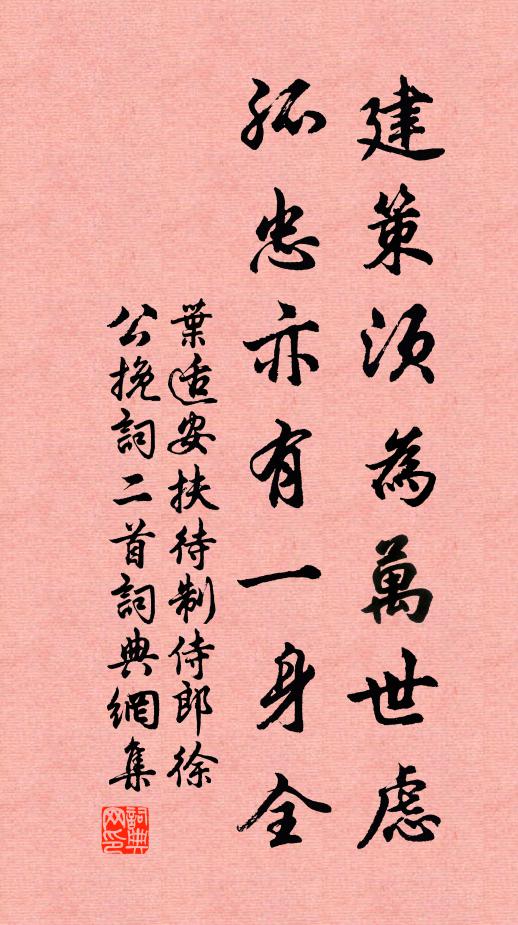 建策須為萬世慮
孤忠亦有一身全
葉适安扶待制侍郎徐
公挽詞二首詞典網集
詞典网印